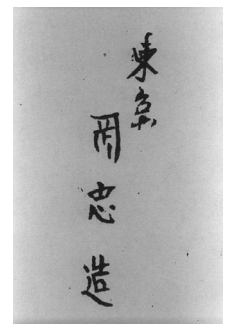 東京
岡忠造